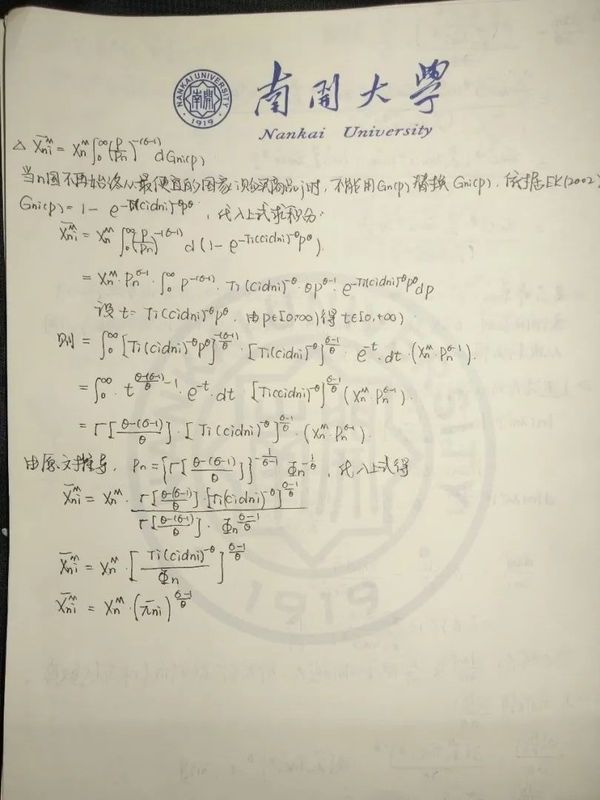 NANKAI UNIVERSITY
南開
1919
南開大學
Nankai University
△ X̄ni^M = Xn^M ∫₀^∞ (p/pn)^-(σ-1) dGni(p)
当n国不再始终从最便宜的国家i购买商品j时,不能用Gn(p)替换Gni(p).依据EK(2002)
Gni(p) = 1 - e^-Ti(cidni)^-θ p^θ,代入上式求积分:
X̄ni^M = Xn^M ∫₀^∞ (p/pn)^-(σ-1) d(1 - e^-Ti(cidni)^-θ p^θ)
= Xn^M · Pn^σ-1 · ∫₀^∞ p^-(σ-1) · Ti(cidni)^-θ · θp^θ-1 · e^-Ti(cidni)^-θ p^θ dp
设 t = Ti(cidni)^-θ p^θ,由p∈[0,∞)得t∈[0,+∞)
则 = ∫₀^∞ [Ti(cidni)^-θ p^θ]^-(σ-1)/θ · [Ti(cidni)^-θ]^(σ-1)/θ · e^-t · dt · (Xn^M · Pn^σ-1).
= ∫₀^∞ t^(θ-(σ-1))/θ - 1 · e^-t · dt · [Ti(cidni)^-θ]^(σ-1)/θ (Xn^M · Pn^σ-1).
= Γ[(θ-(σ-1))/θ] · [Ti(cidni)^-θ]^(σ-1)/θ · (Xn^M · Pn^σ-1).
由原文推导, Pn = {Γ[(θ-(σ-1))/θ]}^-1/(σ-1) Φn^-1/θ,代入上式得
X̄ni^M = Xn^M · Γ[(θ-(σ-1))/θ] · [Ti(cidni)^-θ]^(σ-1)/θ / Γ[(θ-(σ-1))/θ] · Φn^(σ-1)/θ
X̄ni^M = Xn^M · [Ti(cidni)^-θ / Φn]^(σ-1)/θ
X̄ni^M = Xn^M · (π̄ni)^(σ-1)/θ
1919